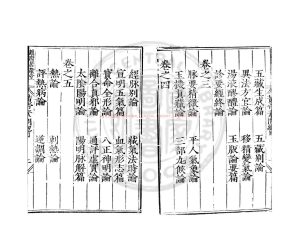 五藏生成篇　五藏別論
異法方宜論　移精變氣論
湯液醪醴論　玉版論要篇
診要經終論
卷之三
脉要精微論　平人氣象論
玉機真藏論　三部九候論
卷之四
經脉別論　藏氣法時論
宣明五氣篇　血氣形志篇
寶命全形論　八正神明論
離合真邪論　通評虛實論
太陰陽明論　陽明脉解篇
卷之五
熱論　刺熱論
評熱病論　逆調論